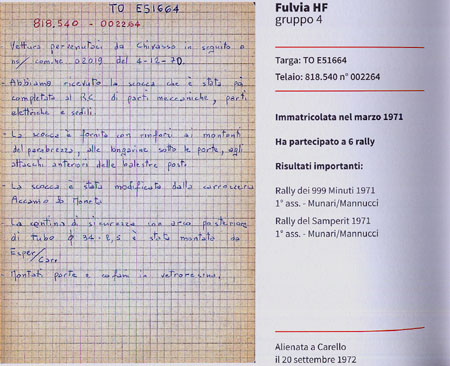 TO E51664
818.540 - 002264
Vettura pervenutaci da Chivasso in seguito a
ns/ com.ne 02019 del 4-12-70.
- Abbiamo ricevuto la scocca che è stata poi
completata al R.C. di parti meccaniche, parti
elettriche e sedili.
- La scocca è fornita con rinforzi ai montanti
del parabrezza, alle longarine sotto le porte, agli
attacchi anteriori delle balestre post.
- La scocca è stata modificata dalla carrozzeria
Accanio Moneta
- La centina di sicurezza con arco posteriore
di tubo ϕ 34-2,5 è stata montata da
Esper/Caro
- Montati porte e cofani in vetroresina.
Fulvia HF
gruppo 4
Targa: TO E51664
Telaio: 818.540 n° 002264
Immatricolata nel marzo 1971
Ha partecipato a 6 rally
Risultati importanti:
Rally dei 999 Minuti 1971
1° ass. - Munari/Mannucci
Rally del Samperit 1971
1° ass. - Munari/Mannucci
Alienata a Carello
il 20 settembre 1972